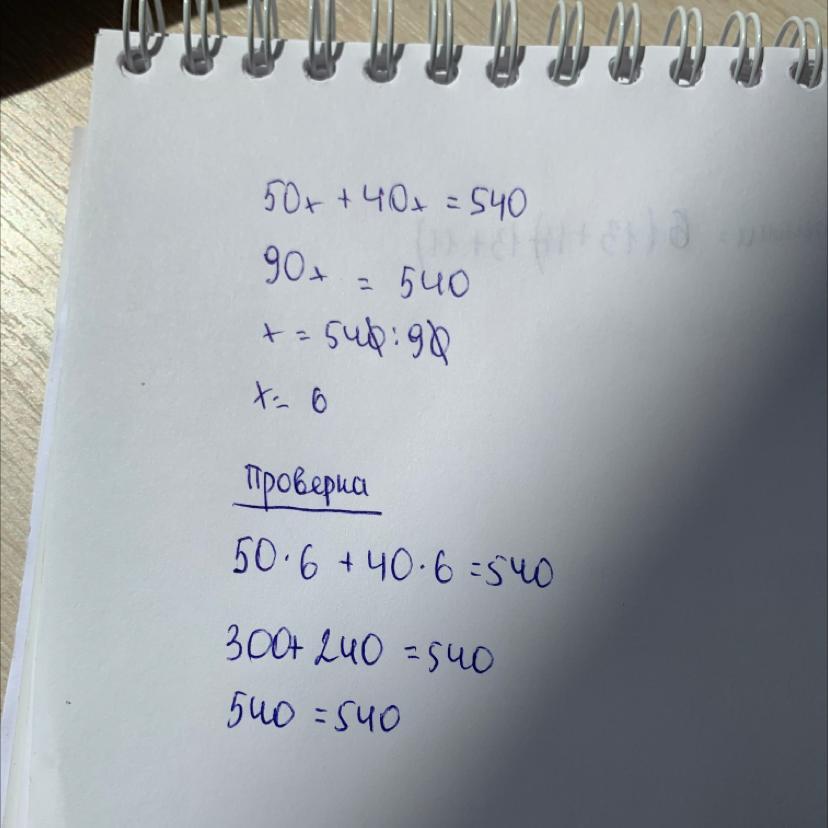 50x + 40x = 540
90x = 540
x = 540 : 90
x = 6
Проверка
50 · 6 + 40 · 6 = 540
300 + 240 = 540
540 = 540